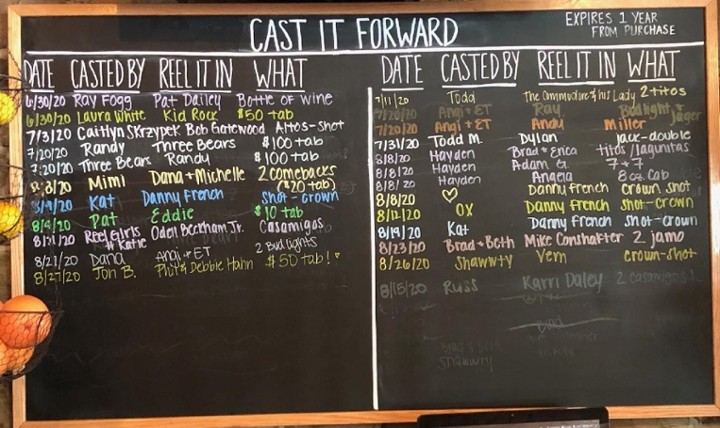 CAST IT FORWARD
EXPIRES 1 YEAR
FROM PURCHASE
DATE CASTED BY REEL IT IN WHAT
6/30/20 Ray Fogg Pat Dailey Bottle of wine
6/30/20 Laura White Kid Rock $50 tab
7/3/20 Caitlyn Skrzypek Bob Gatewood Altos-shot
7/20/20 Randy Three Bears $100 tab
7/20/20 Three Bears Randy $100 tab!
8/20 Mimi Dana + Michelle 2 comebacks
($20 tab)
Kat Danny French shot-crown
8/9/20 Pat Eddie $10 tab
8/21/20 Reel Girls Odell Beckham Jr. Casamigos
# Katie
8/21/20 Dana Angi + ET 2 Bud Lights
8/27/20 Jon B. & Debbie Hahn $50 tab!
DATE CASTED BY REEL IT IN WHAT
7/11/20 Todd The Commodore & his Lady 2 titos
7/20/20 Angi + ET Ray Budlight + Jager
7/20/20 Angi + ET Andy Miller
7/31/20 Todd M. Dylan jack-double
8/8/20 Hayden Brad + Erica titos/lagunitas
8/8/20 Hayden Adam G. 7+7
8/8/20 Hayden Angela 8 oz. Cab
8/8/20 ♡ Danny French crown shot
8/12/20 OX Danny French shot-crown
8/19/20 Kat Danny French shot-crown
8/23/20 Brad + Beth Mike Conshafter 2 jamo
8/26/20 Shawwty Vern crown-shot
8/15/20 Russ Karri Daley 2 casamigos!
Brad
Shawwty